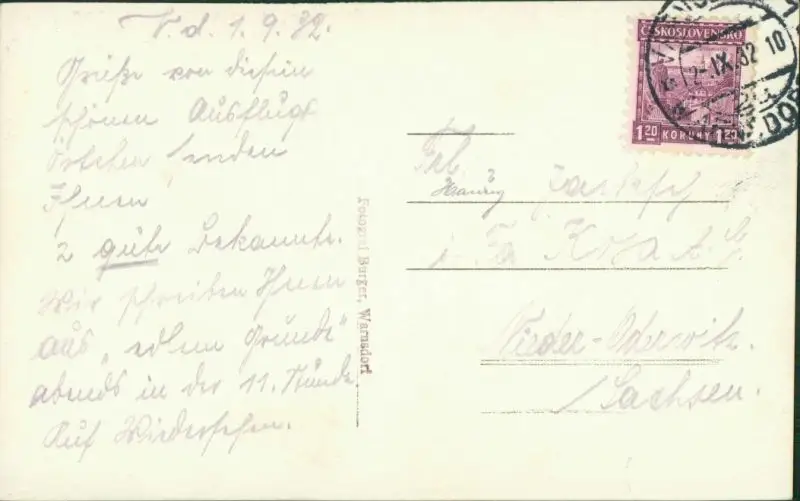 V. d. 1.9.32.
Grüße von diesem
schönen Ausflugs
örtchen senden
Ihnen
2 gute Bekannte.
Wir schreiben Ihnen
aus „edlem Grunde“
abends in der 11. Stunde
Auf Wiedersehen.
Fotograf Burger, Warnsdorf
ČESKOSLOVENSKO
1.20 KORUNY 1.20
2.IX.32 10
Frl.
i. Fa A.G.
Nieder-Oderwitz.
Sachsen.